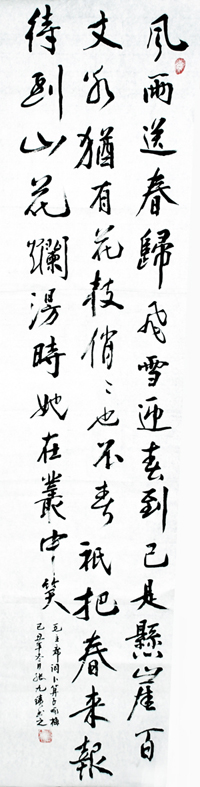 風雨送春歸飛雪迎春到已是懸崖百
丈冰猶有花枝俏〻也不春祇把春來報
待到山花爛漫時她在叢中笑
毛主席詞卜算子咏梅
己丑年冬月張九書之